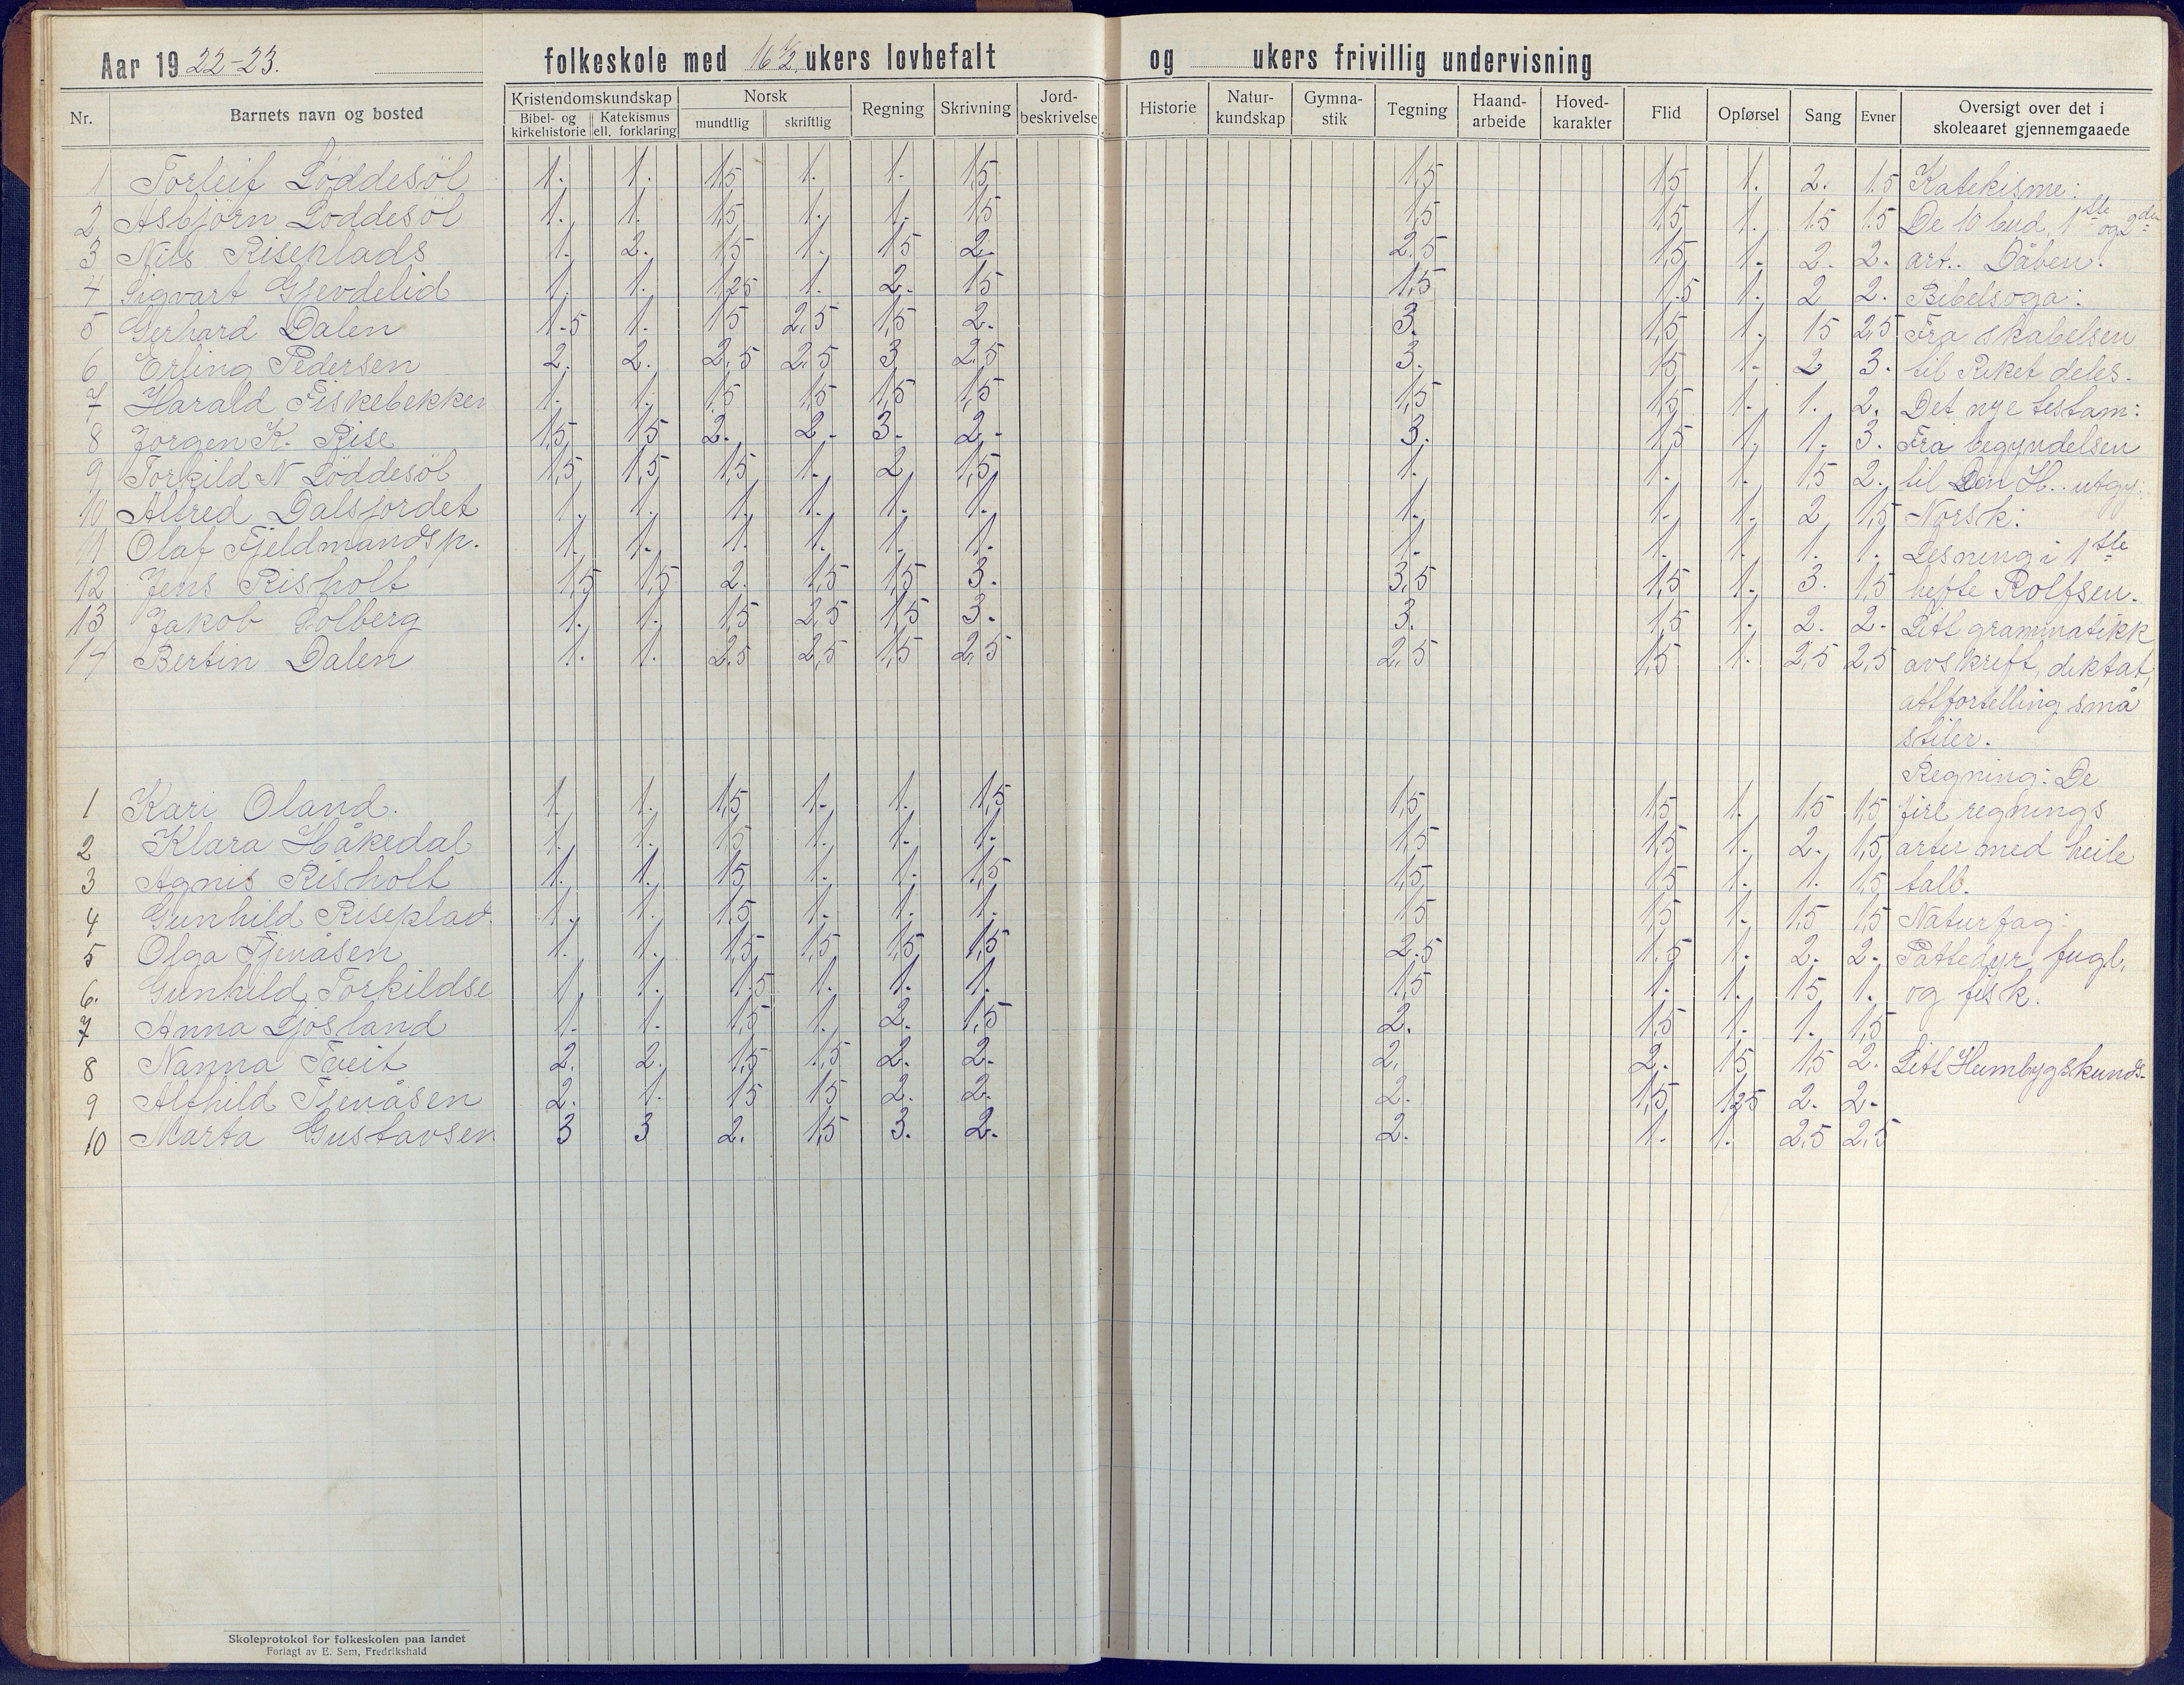 Aar 1922-23. folkeskole med 16 1/2 ukers lovbefalt og ukers frivillig undervisning
Nr. Barnets navn og bosted Kristendomskundskap Bibel- og kirkehistorie Katekismus ell. forklaring Norsk mundtlig skriftlig Regning Skrivning Jord-beskrivelse Historie Natur-kundskap Gymna-stik Tegning Haand-arbeide Hoved-karakter Flid Opførsel Sang Evner Oversigt over det i skoleaaret gjennemgaaede
1 Torleif Löddesöl 1. 1. 1,5 1. 1. 1,5 1,5 1,5 1. 2. 1.5 Katekisme:
2 Asbjörn Löddesöl 1. 1. 1,5 1. 1. 1,5 1,5 1,5 1. 1.5 1.5 De 10 bud, 1ste og 2den
3 Nils Riseplads 1. 2. 1,5 1. 1,5 2. 2.5 1,5 1. 2. 2. art.. Dåben.
4 Sigvart Gjevdelid 1. 1. 1,25 1. 2. 1,5 1,5 1.5 1. 2 2. Bibelsoga:
5 Gerhard Dalen 1.5 1. 1,5 2,5 1,5 2. 3. 1,5 1. 1,5 2,5 Fra skabelsen
6 Erling Pedersen 2. 2. 2,5 2,5 3 2,5 3. 1,5 1. 2 3. til Riket deles.
7 Harald Fiskebekken 1. 1. 1,5 1,5 1,5 1,5 1,5 1,5 1. 1. 2. Det nye testam:
8 Jörgen K. Rise 1,5 1,5 2. 2. 3. 2. 3. 1,5 1. 1. 3. Fra begyndelsen
9 Torkild N Löddesöl 1,5 1,5 1,5 1. 2. 1,5 1. 1. 1. 1,5 2. til Den H. utgy:
10 Alfred Dalsjordet 1. 1. 1. 1. 1. 1. 1. 1. 1. 2 1,5 Norsk:
11 Olaf Fjeldmandsp. 1. 1. 1. 1. 1. 1. 1. 1. 1. 1. 1. Lesning i 1ste
12 Jens Risholt 1,5 1,5 2. 1,5 1,5 3. 3,5 1,5 1. 3. 1,5 hefte Rolfsen.
13 Jakob Solberg 1. 1. 1,5 2,5 1,5 3. 3. 1,5 1. 2. 2. Litl grammatikk
14 Bertin Dalen 1. 1. 2,5 2,5 1,5 2,5 2,5 1,5 1. 2,5 2,5 avskrift, diktat,
attfortelling små
stiler.
Regning: De
1 Kari Oland. 1. 1. 1,5 1. 1. 1,5 1,5 1,5 1. 1,5 1,5 fire regnings
2 Klara Håkedal 1. 1. 1,5 1. 1. 1. 1,5 1,5 1. 2. 1,5 arter med heile
3 Agnis Risholt 1. 1. 1,5 1. 1. 1,5 1,5 1,5 1. 1. 1,5 tall.
4 Gunhild Riseplad. 1. 1. 1,5 1. 1. 1. 1,5 1,5 1. 1,5 1,5 Naturfag:
5 Olga Tjenåsen 1. 1. 1,5 1,5 1,5 1,5 2.5 1.5 1. 2. 2. Pattedyr, fugl,
6. Gunhild Torkildse 1. 1. 1.5 1. 1. 1. 1,5 1. 1. 1,5 1. og fisk.
7 Anna Ljosland 1. 1. 1,5 1. 2. 1,5 2. 1,5 1. 1. 1,5
8 Nanna Tveit 2. 2. 1,5 1,5 2. 2. 2. 2. 1,5 1,5 2. Litl Heimbygdskunds.
9 Alfhild Tjenåsen 2. 1. 1,5 1,5 2. 2. 2. 1,5 1,25 2. 2.
10 Marta Gustavsen 3 3 2. 1,5 3. 2. 2. 1. 1. 2,5 2,5
Skoleprotokol for folkeskolen paa landet
Forlagt av E. Sem, Fredrikshald